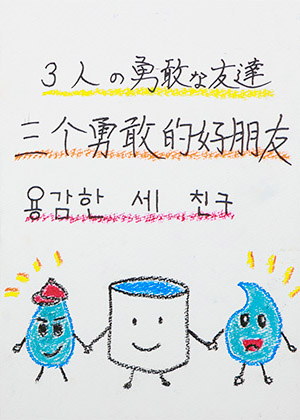 3人の勇敢な友達
三个勇敢的好朋友
용감한 세 친구